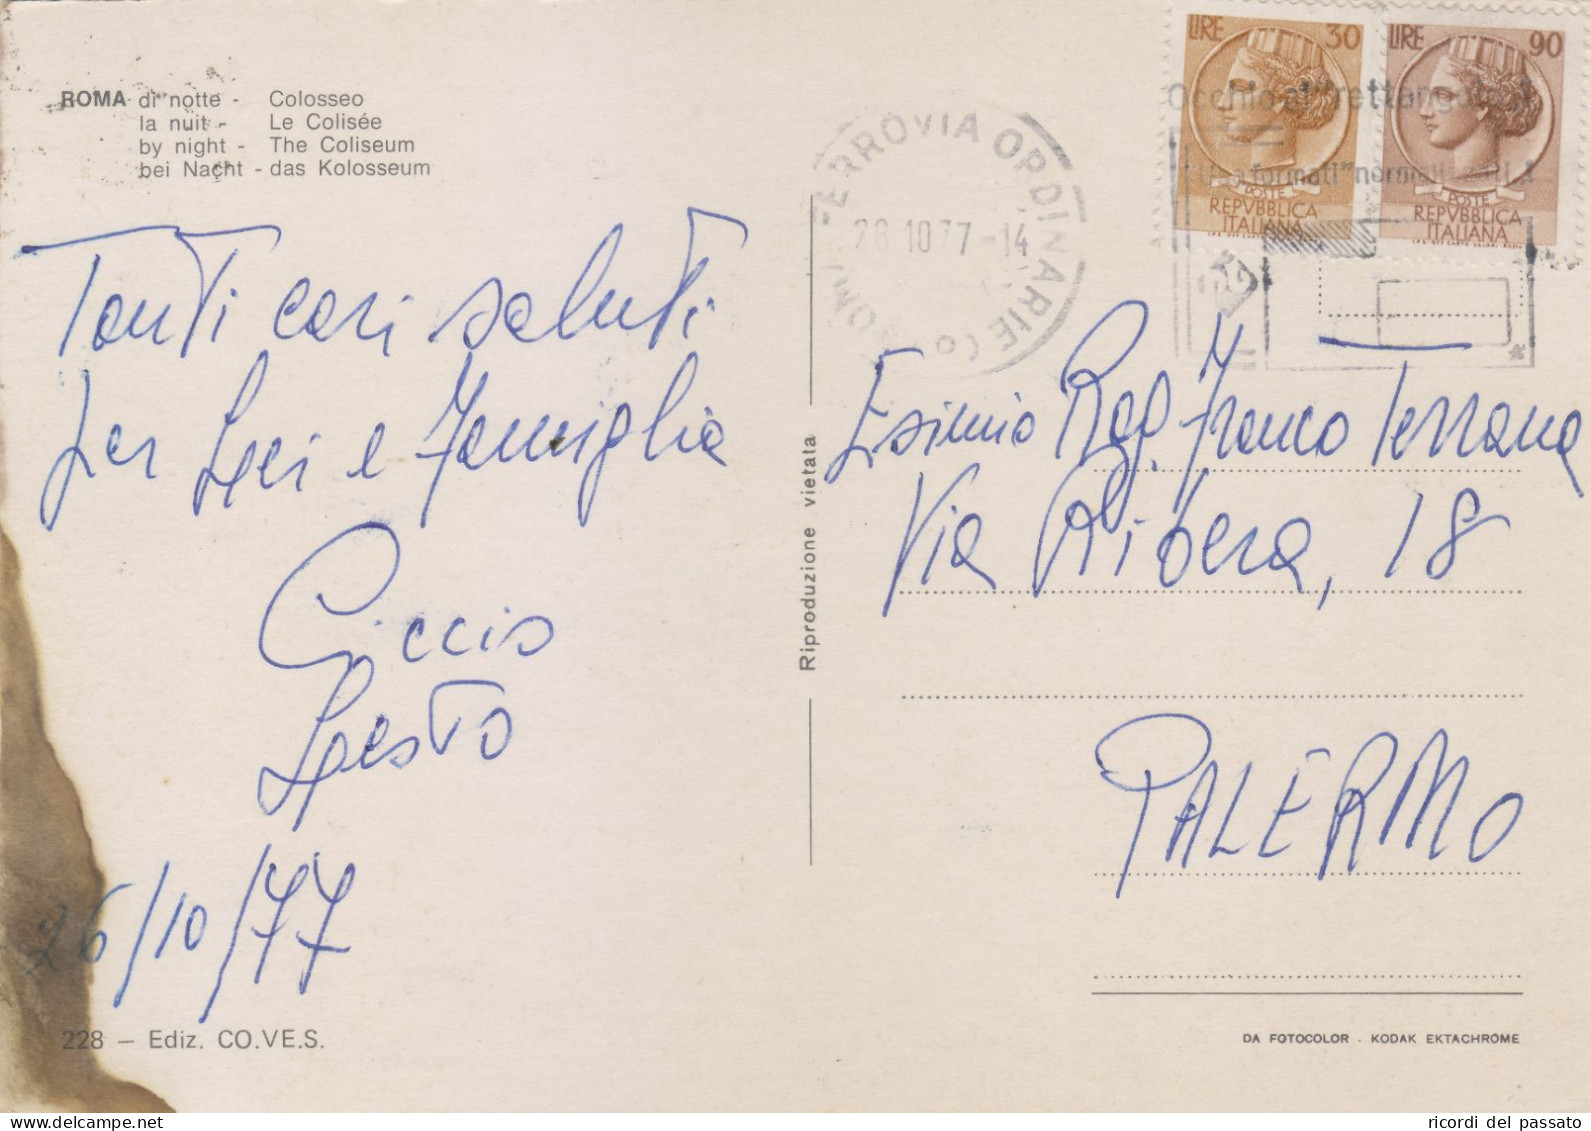 ROMA di notte - Colosseo
la nuit - Le Colisée
by night - The Coliseum
bei Nacht - das Kolosseum
Tanti cari saluti
per Lei e Famiglia
Ciccio
Lesto
26/10/77
228 — Ediz. CO.VE.S.
Riproduzione vietata
FERROVIA ORDINARIE
28.10.77-14
LIRE 30
POSTE
REPVBBLICA
ITALIANA
LIRE 90
POSTE
REPVBBLICA
ITALIANA
Occhio ai "rettangoli"!
formati "normalizzati"!
Esimio Rag. Franco Terrana
Via Ribera, 18
PALERMO
DA FOTOCOLOR - KODAK EKTACHROME
ricordi del passato